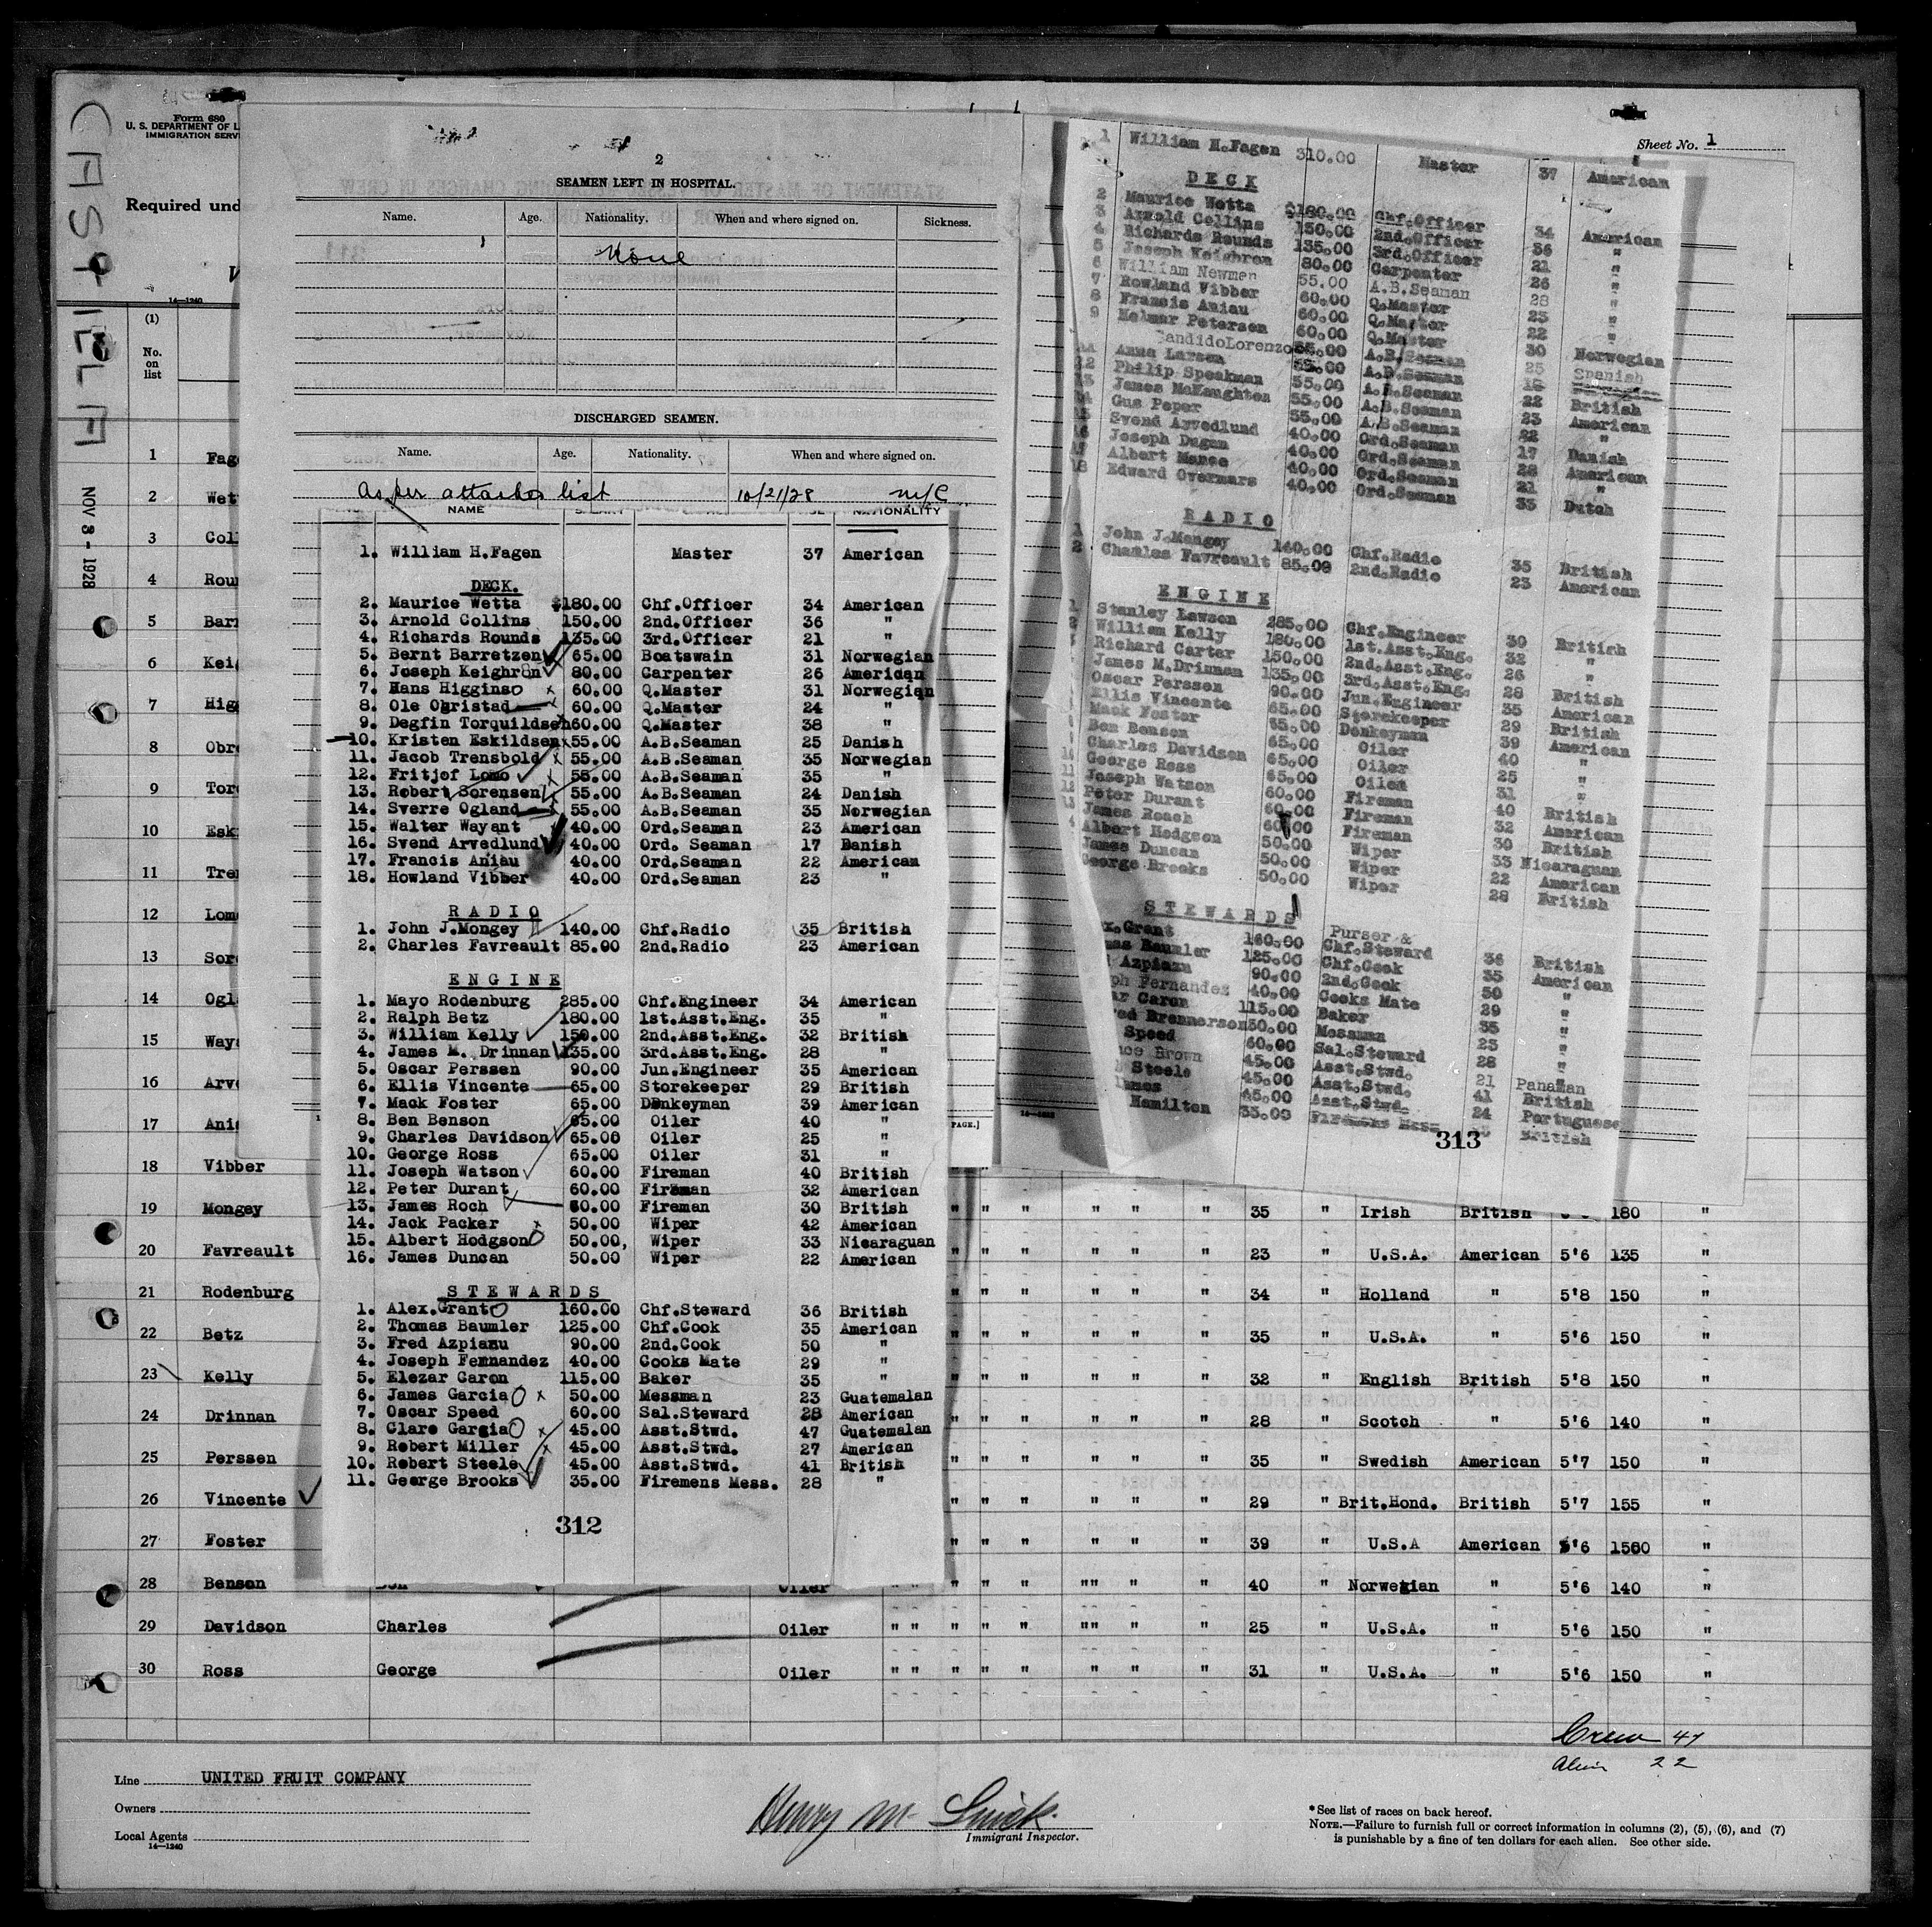 CASTILLA
NOV 3 - 1928
Form 680
U. S. DEPARTMENT OF L
IMMIGRATION SERV
Required und
14—1240
(1)
No. on list
1 Fag
2 Wet
3 Coll
4 Rou
5 Bar
6 Kei
7 Hig
8 Obr
9 Tor
10 Esk
11 Tre
12 Lom
13 Sor
14 Ogl
15 Way
16 Arv
17 Ani
18 Vibber
19 Mongey
20 Favreault
21 Rodenburg
22 Betz
23 Kelly
24 Drinnan
25 Perssen
26 Vincente
27 Foster
28 Benson
29 Davidson Charles Oiler " " " " " "" " " 25 " U.S.A. " 5'6 150 "
30 Ross George Oiler " " " " " " " " 31 " U.S.A. " 5'6 150 "
2
SEAMEN LEFT IN HOSPITAL.
Name. Age. Nationality. When and where signed on. Sickness.
None
DISCHARGED SEAMEN.
Name. Age. Nationality. When and where signed on.
As per attached list 10/21/28 N/C
NAME NATIONALITY
1. William H.Fagen Master 37 American
DECK.
2. Maurice Wetta $180.00 Chf.Officer 34 American
3. Arnold Collins 150.00 2nd.Officer 36 "
4. Richards Rounds 135.00 3rd.Officer 21 "
5. Bernt Barretzen 65.00 Boatswain 31 Norwegian
6. Joseph Keighron 80.00 Carpenter 26 American
7. Hans Higgins 60.00 Q.Master 31 Norwegian
8. Ole Obristad 60.00 Q.Master 24 "
9. Degfin Torquildsen 60.00 Q.Master 38 "
10. Kristen Eskildsen 55.00 A.B.Seaman 25 Danish
11. Jacob Trensbold 55.00 A.B.Seaman 35 Norwegian
12. Fritjof Lomo 55.00 A.B.Seaman 35 "
13. Robert Sorensen 55.00 A.B.Seaman 24 Danish
14. Sverre Ogland 55.00 A.B.Seaman 35 Norwegian
15. Walter Wayant 40.00 Ord.Seaman 23 American
16. Svend Arvedlund 40.00 Ord. Seaman 17 Danish
17. Francis Aniau 40.00 Ord.Seaman 22 American
18. Howland Vibber 40.00 Ord.Seaman 23 "
RADIO
1. John J.Mongey 140.00 Chf.Radio 35 British
2. Charles Favreault 85.00 2nd.Radio 23 American
ENGINE
1. Mayo Rodenburg 285.00 Chf.Engineer 34 American
2. Ralph Betz 180.00 1st.Asst.Eng. 35 "
3. William Kelly 150.00 2nd.Asst.Eng. 32 British
4. James M. Drinnan 135.00 3rd.Asst.Eng. 28 "
5. Oscar Perssen 90.00 Jun.Engineer 35 American
6. Ellis Vincente 65.00 Storekeeper 29 British
7. Mack Foster 65.00 Donkeyman 39 American
8. Ben Benson 65.00 Oiler 40 "
9. Charles Davidson 65.00 Oiler 25 "
10. George Ross 65.00 Oiler 31 "
11. Joseph Watson 60.00 Fireman 40 British
12. Peter Durant 60.00 Fireman 32 American
13. James Roch 60.00 Fireman 30 British
14. Jack Packer 50.00 Wiper 42 American
15. Albert Hodgson 50.00, Wiper 33 Nicaraguan
16. James Duncan 50.00 Wiper 22 American
STEWARDS
1. Alex.Grant 160.00 Chf.Steward 36 British
2. Thomas Baumler 125.00 Chf.Cook 35 American
3. Fred Azpiazu 90.00 2nd.Cook 50 "
4. Joseph Fernandez 40.00 Cooks Mate 29 "
5. Elezar Caron 115.00 Baker 35 "
6. James Garcia 50.00 Messman 23 Guatemalan
7. Oscar Speed 60.00 Sal.Steward 28 American
8. Clare Gargia 45.00 Asst.Stwd. 47 Guatemalan
9. Robert Miller 45.00 Asst.Stwd. 27 American
10. Robert Steele 45.00 Asst.Stwd. 41 British
11. George Brooks 35.00 Firemens Mess. 28 "
312
PAGE.]
Sheet No. 1
1 William H.Fagen 310.00 Master 37 American
DECK
2 Maurice Wetta $180.00 Chf.Officer 34 American
3 Arnold Collins 150.00 2nd.Officer 36 "
4 Richards Rounds 135.00 3rd.Officer 21 "
5 Joseph Keighron 80.00 Carpenter 26 "
6 William Newman 55.00 A.B.Seaman 28 "
7 Rowland Vibber 60.00 Q.Master 23 "
8 Francis Aniau 60.00 Q.Master 22 "
9 Helmar Petersen 60.00 Q.Master 30 Norwegian
CandidoLorenzo 55.00 A.B.Seaman 25 Spanish
11 Anna Larsen 55.00 A.B.Seaman 18
12 Philip Speakman 55.00 A.B.Seaman 22 British
13 James McNaughton 55.00 A.B.Seaman 23 American
14 Gus Peper 55.00 A.B.Seaman 22 "
15 Svend Arvedlund 40.00 Ord.Seaman 17 Danish
16 Joseph Dugan 40.00 Ord.Seaman 28 American
17 Albert Manee 40.00 Ord.Seaman 21 "
18 Edward Overmars 40.00 Ord.Seaman 33 Dutch
RADIO
1 John J.Mongey 140.00 Chf.Radio 35 British
2 Charles Favreault 85.00 2nd.Radio 23 American
ENGINE
1 Stanley Lawson 285.00 Chf.Engineer 30 British
2 William Kelly 180.00 1st.Asst.Eng. 32 "
3 Richard Carter 150.00 2nd.Asst.Eng. 26 "
James M.Drinnan 135.00 3rd.Asst.Eng. 28 British
Oscar Perssen 90.00 Jun.Engineer 35 American
Ellis Vincente 65.00 Storekeeper 29 British
Mack Foster 65.00 Donkeyman 39 American
Ben Benson 65.00 Oiler 40 "
Charles Davidson 65.00 Oiler 25 "
10 George Ross 65.00 Oiler 31 "
11 Joseph Watson 60.00 Fireman 40 British
12 Peter Durant 60.00 Fireman 32 American
13 James Roach 60.00 Fireman 30 British
Albert Hodgson 50.00 Wiper 33 Nicaraguan
James Duncan 50.00 Wiper 22 American
George Brooks 50.00 Wiper 28 British
STEWARDS
x.Grant 160.00 Purser & Chf.Steward 36 British
mas Baumler 125.00 Chf.Cook 35 American
Azpiazu 90.00 2nd.Cook 50 "
ph Fernandez 40.00 Cooks Mate 29 "
ar Caron 115.00 Baker 35 "
red Brennerson 50.00 Messman 23 "
Speed 60.00 Sal.Steward 28 "
nce Brown 45.00 Asst.Stwd. 21 Panaman
Steele 45.00 Asst.Stwd. 41 British
45.00 Asst.Stwd. 24 Portuguese
Hamilton 35.00 Firemens Mess British
313
" " " " " " 35 " Irish British 180 "
" " " " " " 23 " U.S.A. American 5'6 135 "
" " " " " " 34 " Holland " 5'8 150 "
" " " " " " 35 " U.S.A. " 5'6 150 "
" " " " " " 32 " English British 5'8 150 "
" " " " " " 28 " Scotch " 5'6 140 "
" " " " " " 35 " Swedish American 5'7 150 "
" " " " " " 29 " Brit.Hond. British 5'7 155 "
" " " " " " 39 " U.S.A American 5'6 1560 "
Oiler " " " " " "" " " 40 " Norwegian " 5'6 140 "
Crew 47
Alien 22
Line UNITED FRUIT COMPANY
Owners
Local Agents
14—1240
Henry M. Smick
Immigrant Inspector.
*See list of races on back hereof.
NOTE.—Failure to furnish full or correct information in columns (2), (5), (6), and (7)
is punishable by a fine of ten dollars for each alien. See other side.